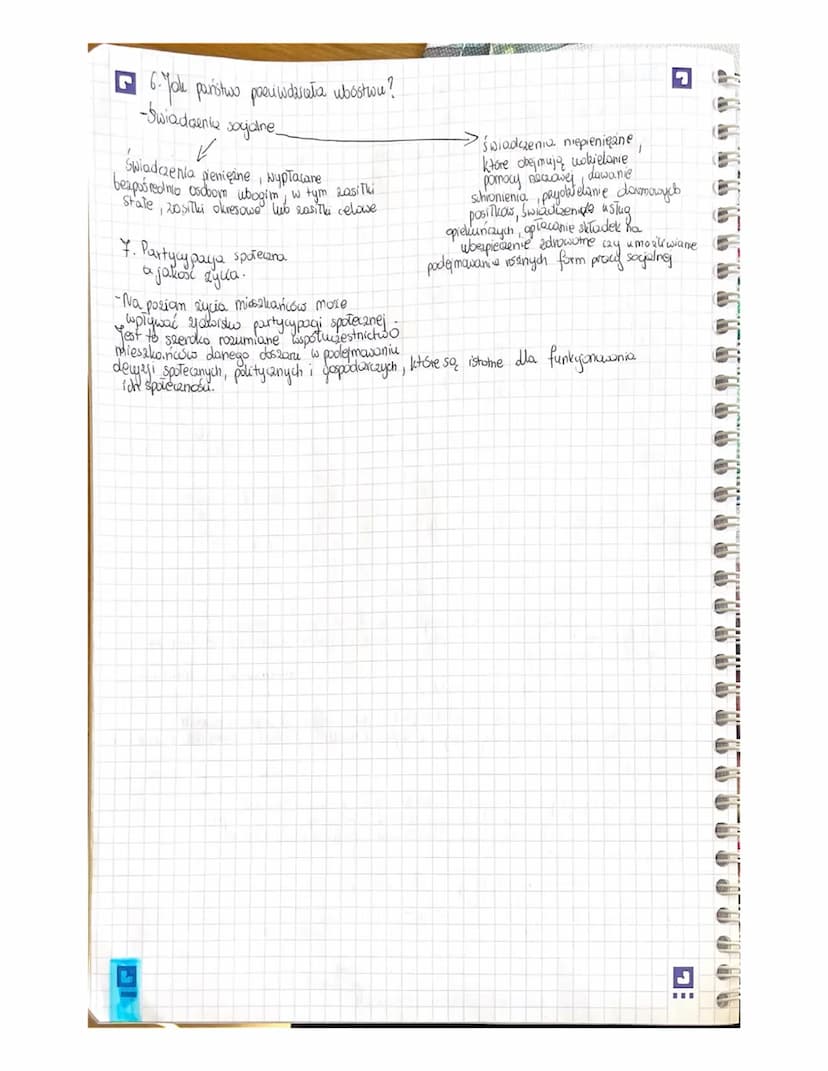 6. Jak państwo przeciwdziała ubóstwu?
-Świadczenia socjalne
świadczenia pieniężne, wypłacane
bezpośrednio osobom ubogim, w tym zasiłki
stałe, zasiłki okresowe lub zasiłki celowe
świadczenia niepieniężne,
które obejmują udzielanie
pomocy rzeczowej, dawanie
schronienia, przydzielanie darmowych
posiłków, świadczenie usług
opiekuńczych, opłacanie składek na
ubezpieczenie zdrowotne czy umożliwianie
podejmowania różnych form pracy socjalnej
7. Partycypacja społeczna
a jakość życia.
-Na poziom życia mieszkańców może
wpływać zjawisko partycypacji społecznej.
Jest to szeroko rozumiane współuczestnictwo
mieszkańców danego obszaru w podejmowaniu
decyzji społecznych, politycznych i gospodarczych, które są istotne dla funkcjonowania
ich społeczności.